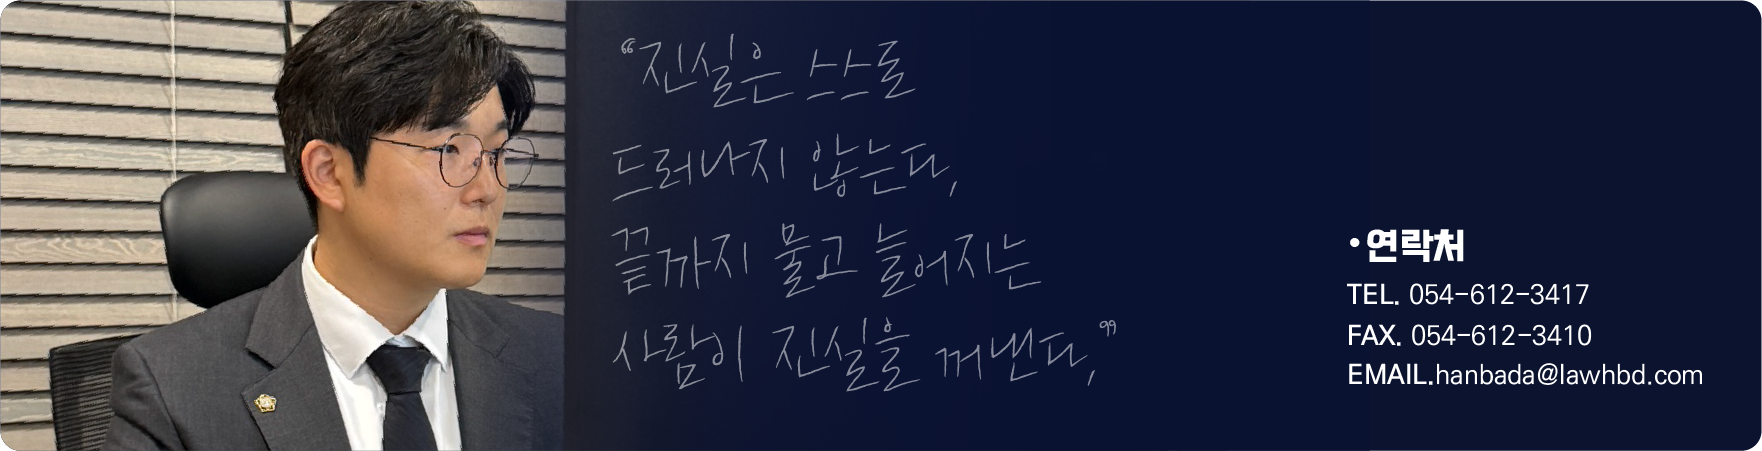 “진실은 스스로
드러나지 않는다,
끝까지 물고 늘어지는
사람이 진실을 꺼낸다,”
•연락처
TEL. 054-612-3417
FAX. 054-612-3410
EMAIL.hanbada@lawhbd.com